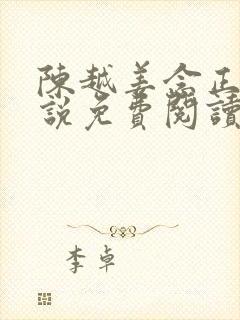 陳越姜念正
說免費閱讀
李卓